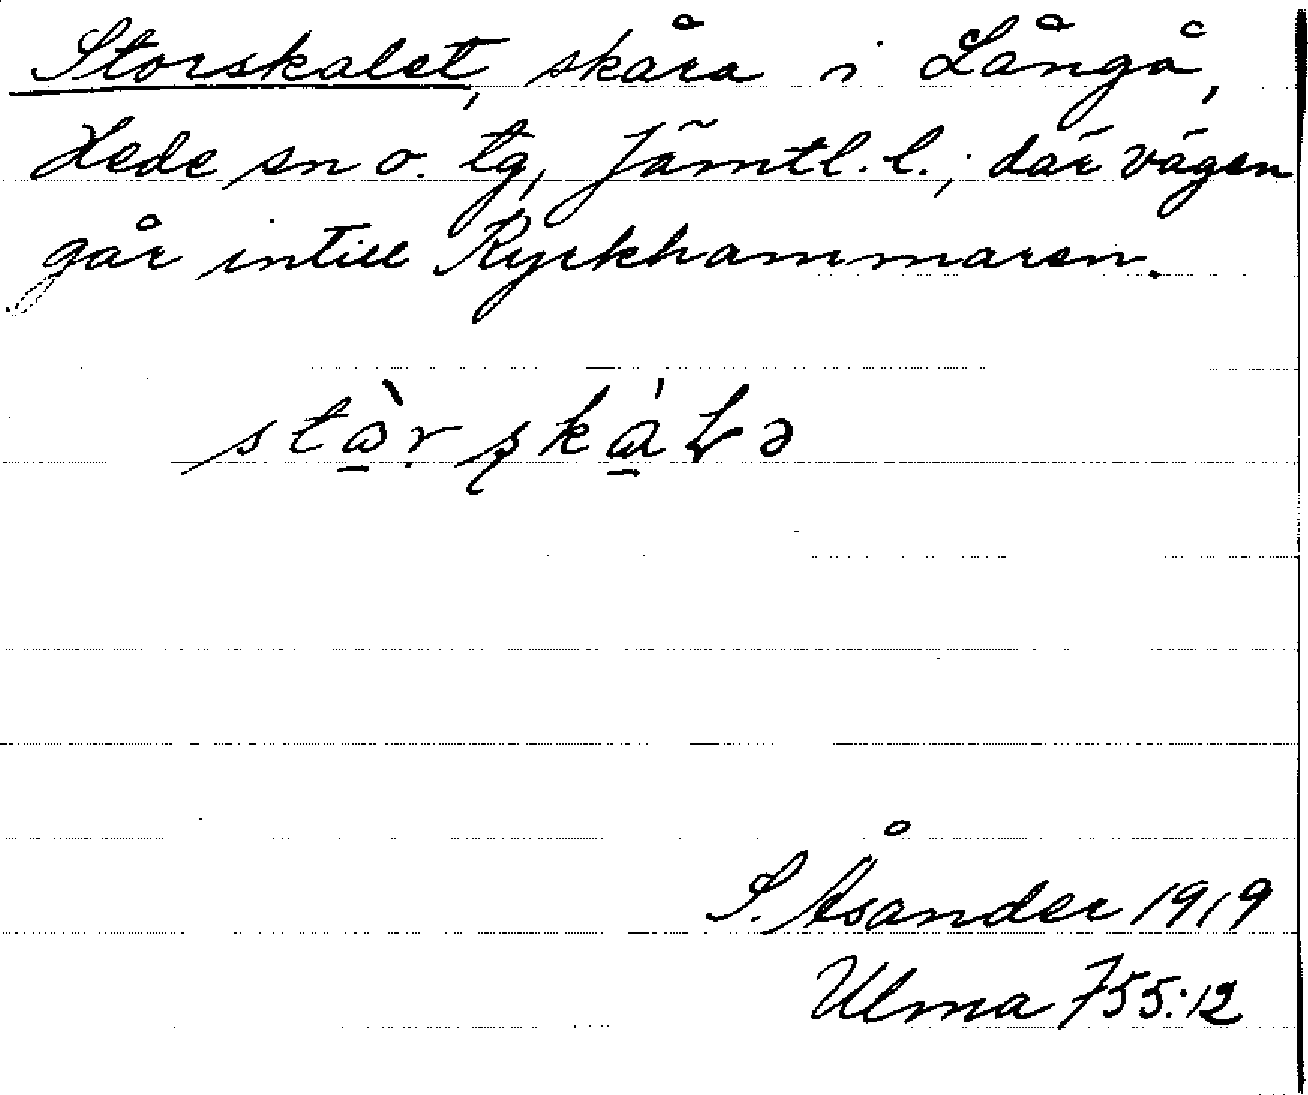 Storskalet, skåra i Långå,
Hede sn o. tg, Jämtl. l.; där vägen
går intill Ryrkhammaren.
stàrskáLə
S. Åsander 1919
Ulma 755:12